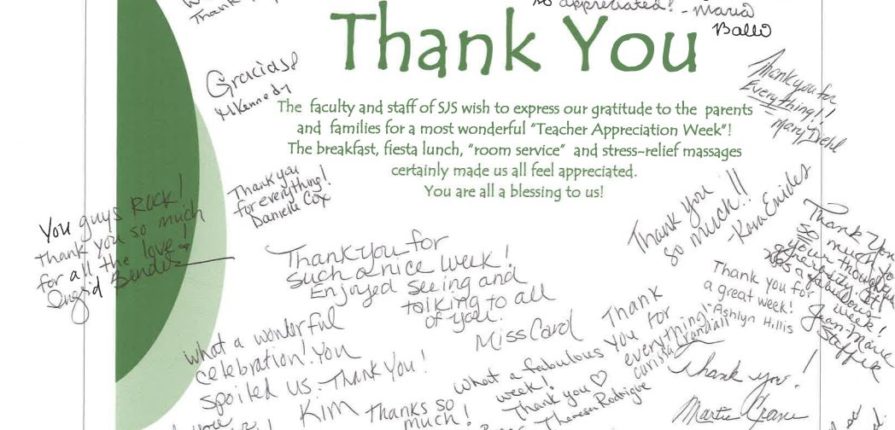 Thank
so appreciated! - Maria
Ballo
Thank You
Gracias!
M Kennedy
Thank you for
Everything!!
- Mary Diehl
The faculty and staff of SJS wish to express our gratitude to the parents
and families for a most wonderful "Teacher Appreciation Week"!
The breakfast, fiesta lunch, "room service" and stress-relief massages
certainly made us all feel appreciated.
You are all a blessing to us!
Thank you
for everything!
Danielle Cox
You guys Rock!
Thank you so much
for all the love!
Ingrid Bender
Thank you
so much!!
- Kara Enides
Thank You
so much for
your thoughtful
was a fabulous
week!
Jean-Marie
Thank you for
such a nice week!
Enjoyed seeing and
talking to all
of you.
Miss Carol
Thank you for
a great week!
Ashlyn Hillis
Thank
You for
everything!
What a wonderful
celebration! You
spoiled us. Thank You!
Kim
What a fabulous
week!
Thank you ♡
Theresa Rodrigue
Thank you!
Martie Crane
Thanks so
much!